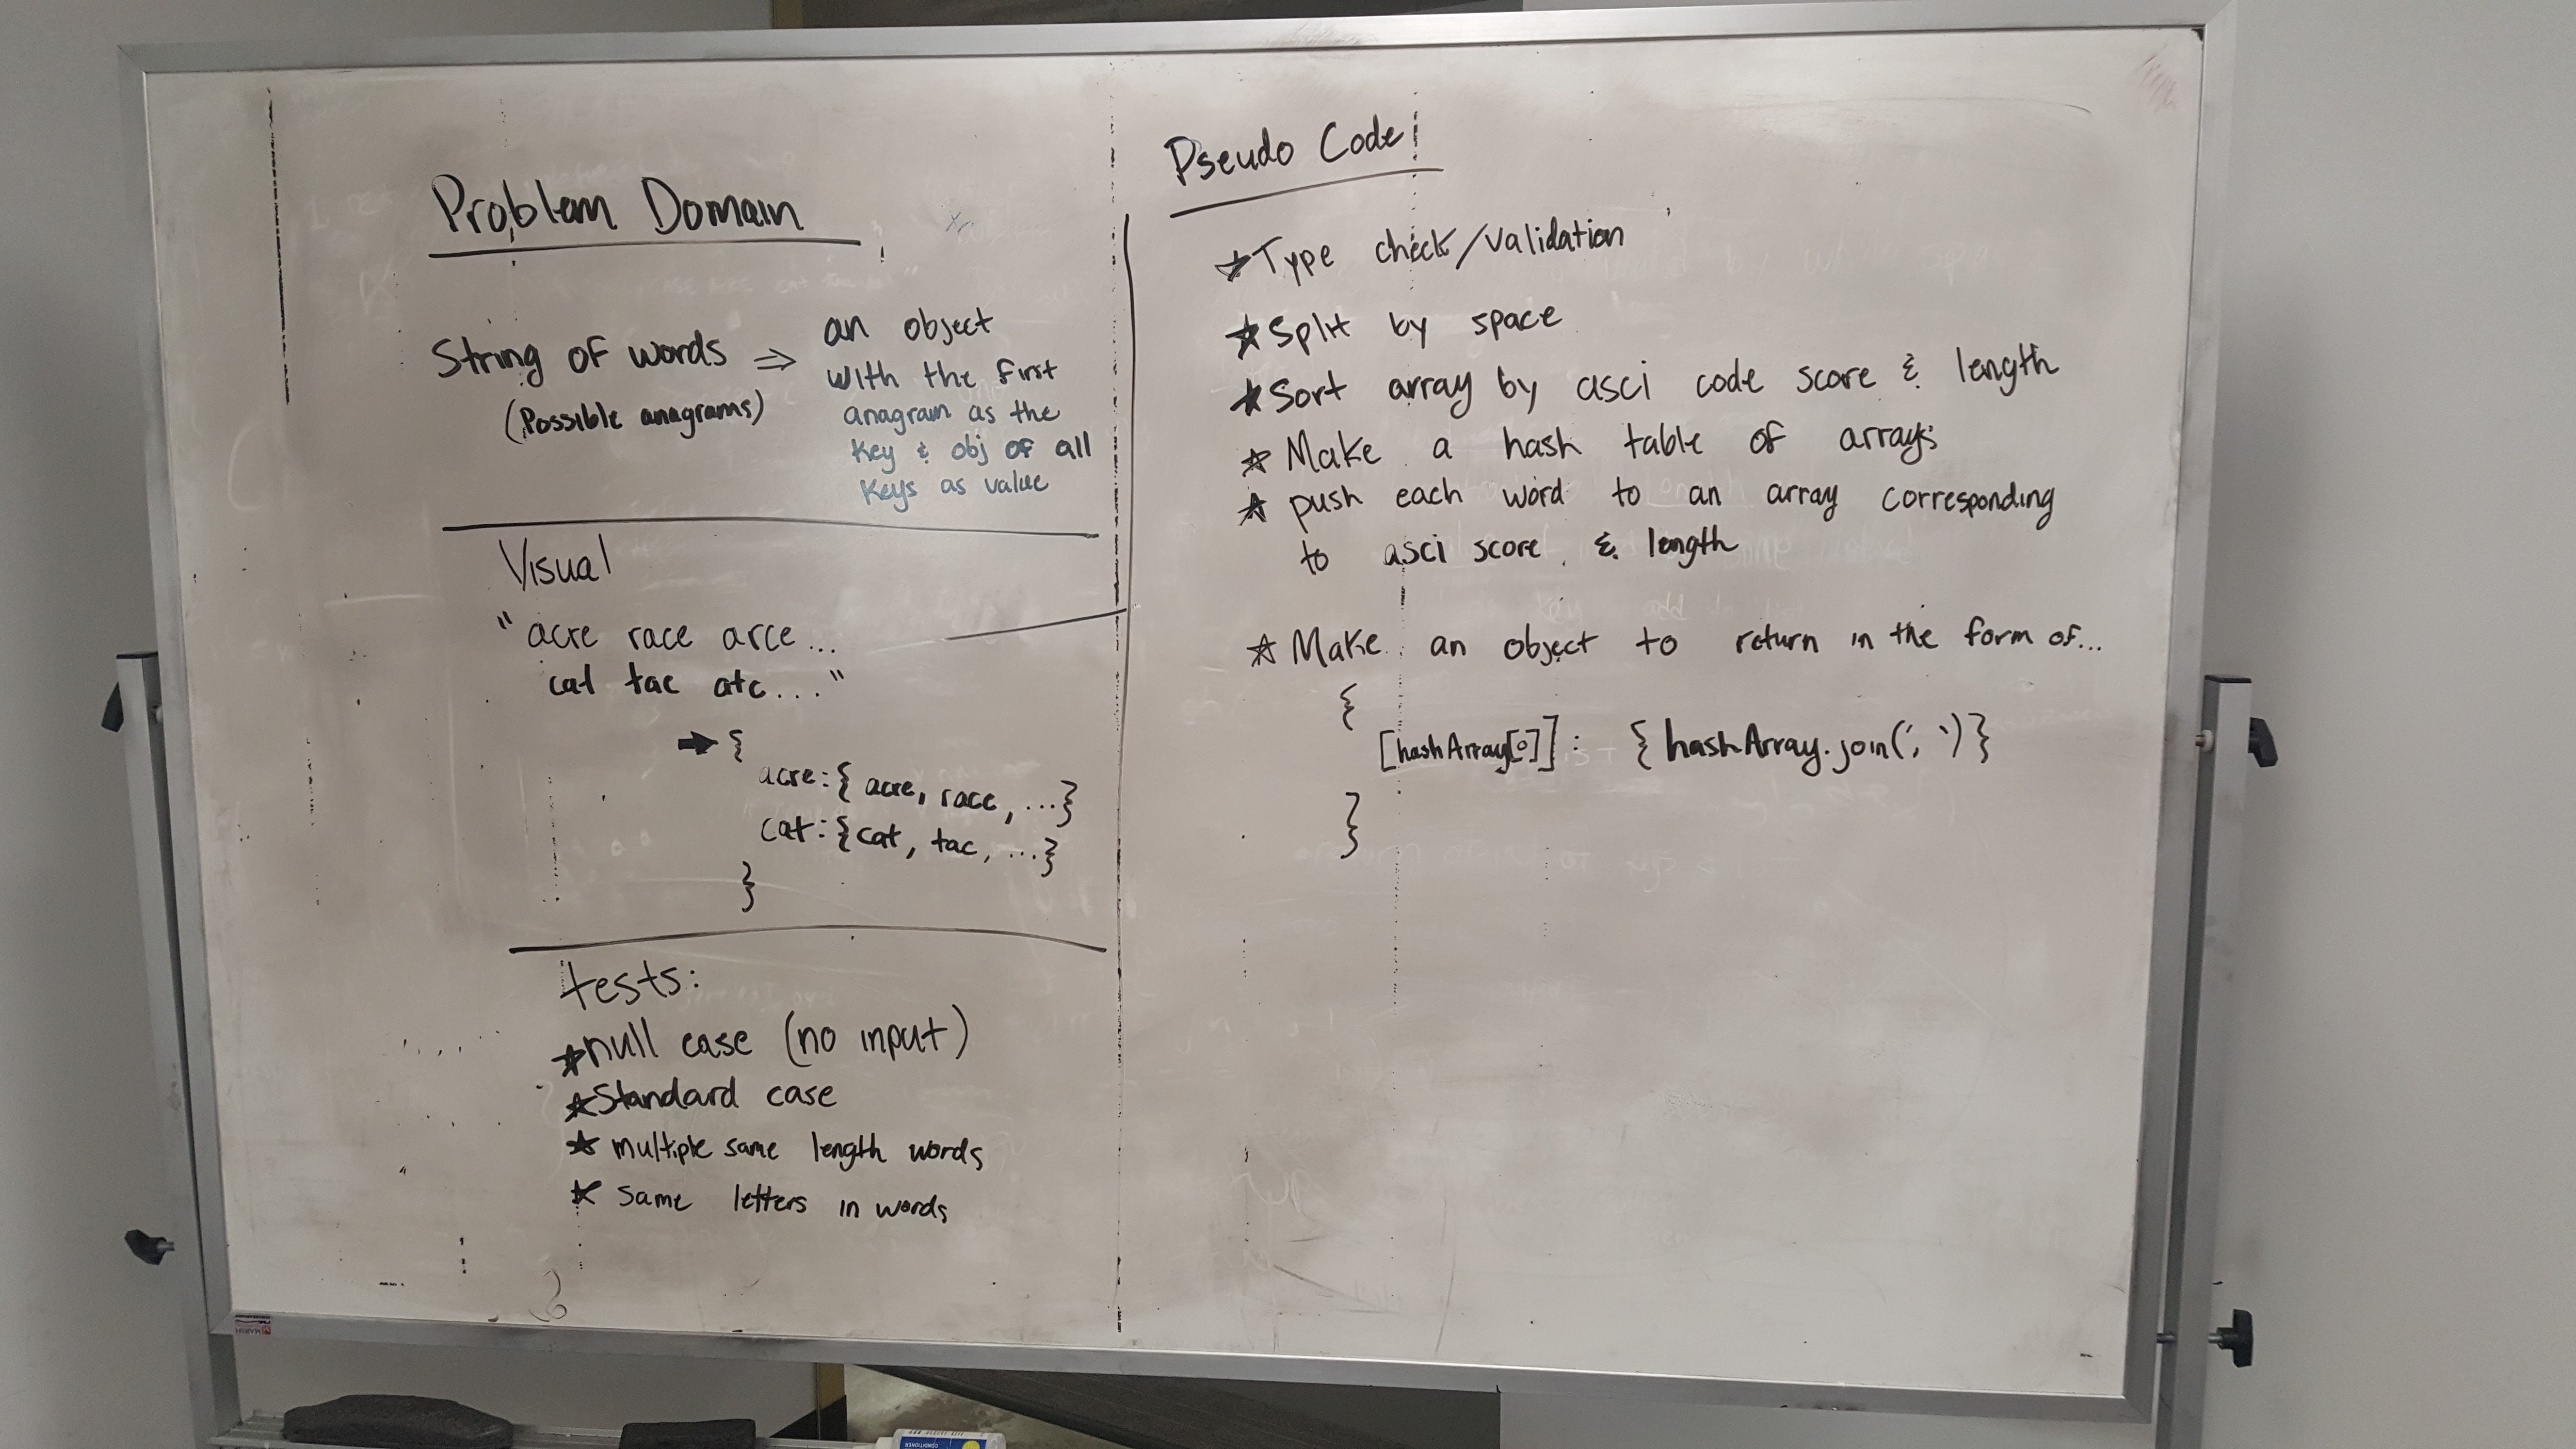 Problem Domain
String of words ⇒
(Possible anagrams)
an object
with the first
anagram as the
key & obj of all
keys as value
Visual
"acre race arce...
cat tac atc..."
➡ {
acre: { acre, race, ...}
cat: {cat, tac, ...}
}
tests:
★ null case (no input)
★ Standard case
★ multiple same length words
★ same letters in words
Pseudo Code
★ Type check/validation
★ Split by space
★ Sort array by asci code score & length
★ Make a hash table of arrays
★ push each word to an array corresponding
to asci score & length
★ Make an object to return in the form of...
{
[hashArray[0]]: {hashArray.join(', ')}
}
CONDITIONER